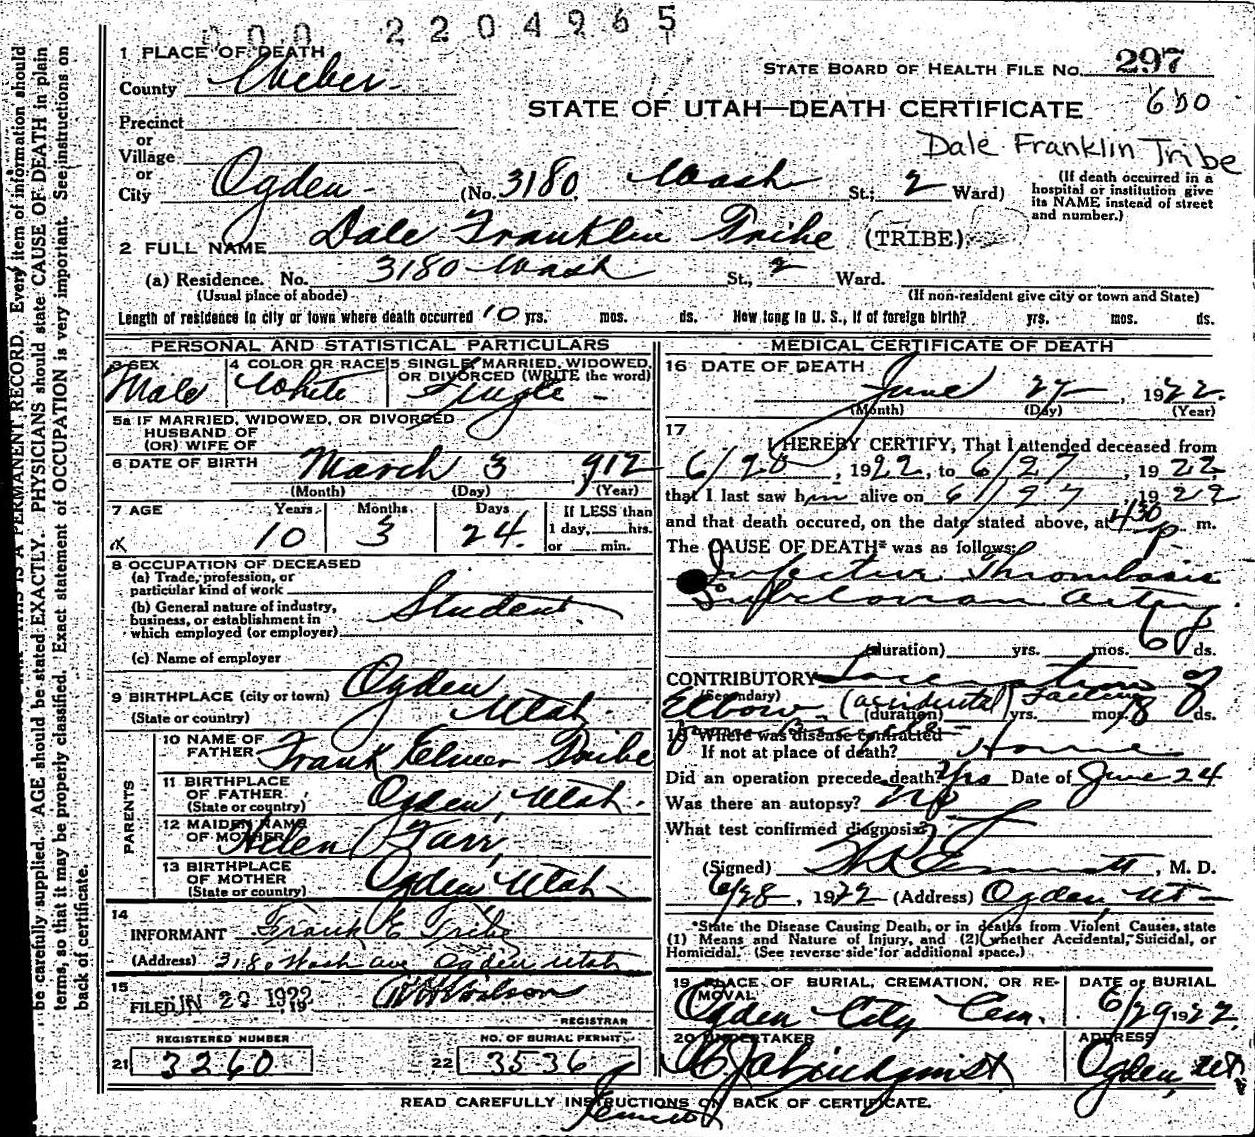 000 2204965
1 PLACE OF DEATH
County Weber
STATE BOARD OF HEALTH FILE No. 297
STATE OF UTAH—DEATH CERTIFICATE 600
Precinct
or
Village
or
City Ogden (No. 3180 Wash St.; 2 Ward)
Dale Franklin Tribe
(If death occurred in a
hospital or institution give
its NAME instead of street
and number.)
2 FULL NAME Dale Franklin Tribe (TRIBE)
(a) Residence. No. 3180 Wash St., 2 Ward.
(Usual place of abode) (If non-resident give city or town and State)
Length of residence in city or town where death occurred 10 yrs. mos. ds. How long in U. S., if of foreign birth? yrs. mos. ds.
PERSONAL AND STATISTICAL PARTICULARS
3 SEX Male
4 COLOR OR RACE White
5 SINGLE, MARRIED, WIDOWED,
OR DIVORCED (WRITE the word)
Single
5a IF MARRIED, WIDOWED, OR DIVORCED
HUSBAND OF
(OR) WIFE OF
6 DATE OF BIRTH March 3 1912
(Month) (Day) (Year)
7 AGE Years Months Days If LESS than
10 3 24 1 day, hrs.
or min.
8 OCCUPATION OF DECEASED
(a) Trade, profession, or
particular kind of work
(b) General nature of industry,
business, or establishment in
which employed (or employer)
Student
(c) Name of employer
9 BIRTHPLACE (city or town) Ogden
(State or country) Utah
PARENTS
10 NAME OF
FATHER Frank Elmer Tribe
11 BIRTHPLACE
OF FATHER
(State or country) Ogden, Utah.
12 MAIDEN NAME
OF MOTHER Helen Farr,
13 BIRTHPLACE
OF MOTHER
(State or country) Ogden, Utah
14
INFORMANT Frank E Tribe
(Address) 3180 Wash ave Ogden Utah
15
FILED JUN 29 1922, 19
REGISTRAR
REGISTERED NUMBER
21 3260
NO. OF BURIAL PERMIT
22 3536
MEDICAL CERTIFICATE OF DEATH
16 DATE OF DEATH June 27, 1922
(Month) (Day) (Year)
17
I HEREBY CERTIFY, That I attended deceased from
6/20, 1922, to 6/27, 1922,
that I last saw him alive on 6/27, 1922
and that death occured, on the date stated above, at 430 p m.
The CAUSE OF DEATH* was as follows:
Infective Thrombosis
Subclavian artery
(duration) yrs. mos. 6 ds.
CONTRIBUTORY Laceration of
(Secondary)
Elbow (accidental) Falling
(duration) yrs. mos. 8 ds.
18 Where was disease contracted
If not at place of death? Home
Did an operation precede death? Yes Date of June 24
Was there an autopsy? No
What test confirmed diagnosis?
(Signed) Emmett, M. D.
6/28, 1922 (Address) Ogden, Ut
*State the Disease Causing Death, or in deaths from Violent Causes, state
(1) Means and Nature of Injury, and (2) whether Accidental, Suicidal, or
Homicidal. (See reverse side for additional space.)
19 PLACE OF BURIAL, CREMATION, OR RE-
MOVAL
Ogden City Cem.
DATE OF BURIAL
6/29 1922
20 UNDERTAKER
Lindquist
ADDRESS
Ogden, Utah
READ CAREFULLY INSTRUCTIONS ON BACK OF CERTIFICATE.
THIS IS A PERMANENT RECORD. Every item of information should
be carefully supplied. AGE should be stated EXACTLY. PHYSICIANS should state CAUSE OF DEATH in plain
terms, so that it may be properly classified. Exact statement of OCCUPATION is very important. See instructions on
back of certificate.